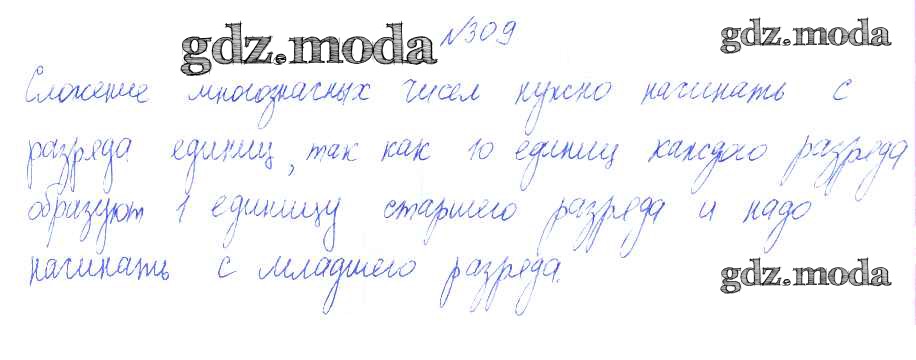 gdz.moda №309 gdz.moda
Сложение многозначных чисел нужно начинать с
разряда единиц, так как 10 единиц каждого разряда
образуют 1 единицу старшего разряда и надо
начинать с младшего разряда.
gdz.moda